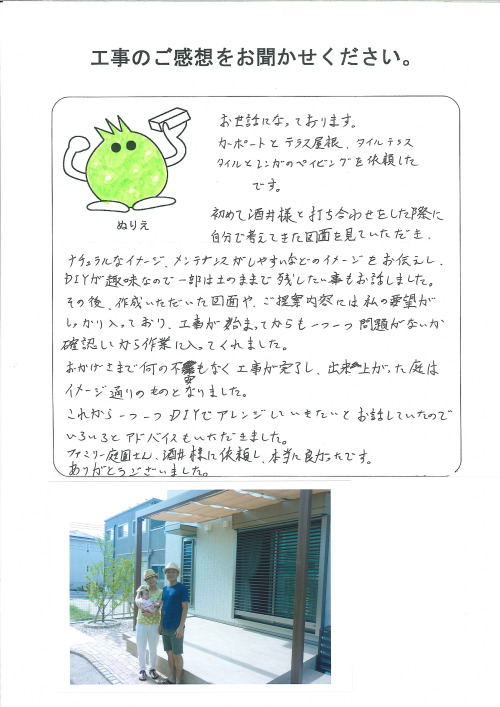 工事のご感想をお聞かせください。
ぬりえ
お世話になっております。
カーポートとテラス屋根、タイルテラス
タイルとレンガのペイビングを依頼した
です。
初めて酒井様と打ち合わせをした際に
自分で考えてきた図面を見ていただき、
ナチュラルなイメージ、メンテナンスがしやすいなどのイメージをお伝えし、
DIYが趣味なので一部は土のままで残したい事もお話しました。
その後、作成いただいた図面や、ご提案内容には私の要望が
しっかり入っており、工事が始まってからも一つ一つ問題がないか
確認しながら作業に入ってくれました。
おかげさまで何の不安もなく工事が完了し、出来上がった庭は
イメージ通りのものとなりました。
これから一つ一つDIYでアレンジしていきたいとお話していたので
いろいろとアドバイスもいただきました。
ファミリー庭園さん、酒井様に依頼し、本当に良かったです。
ありがとうございました。